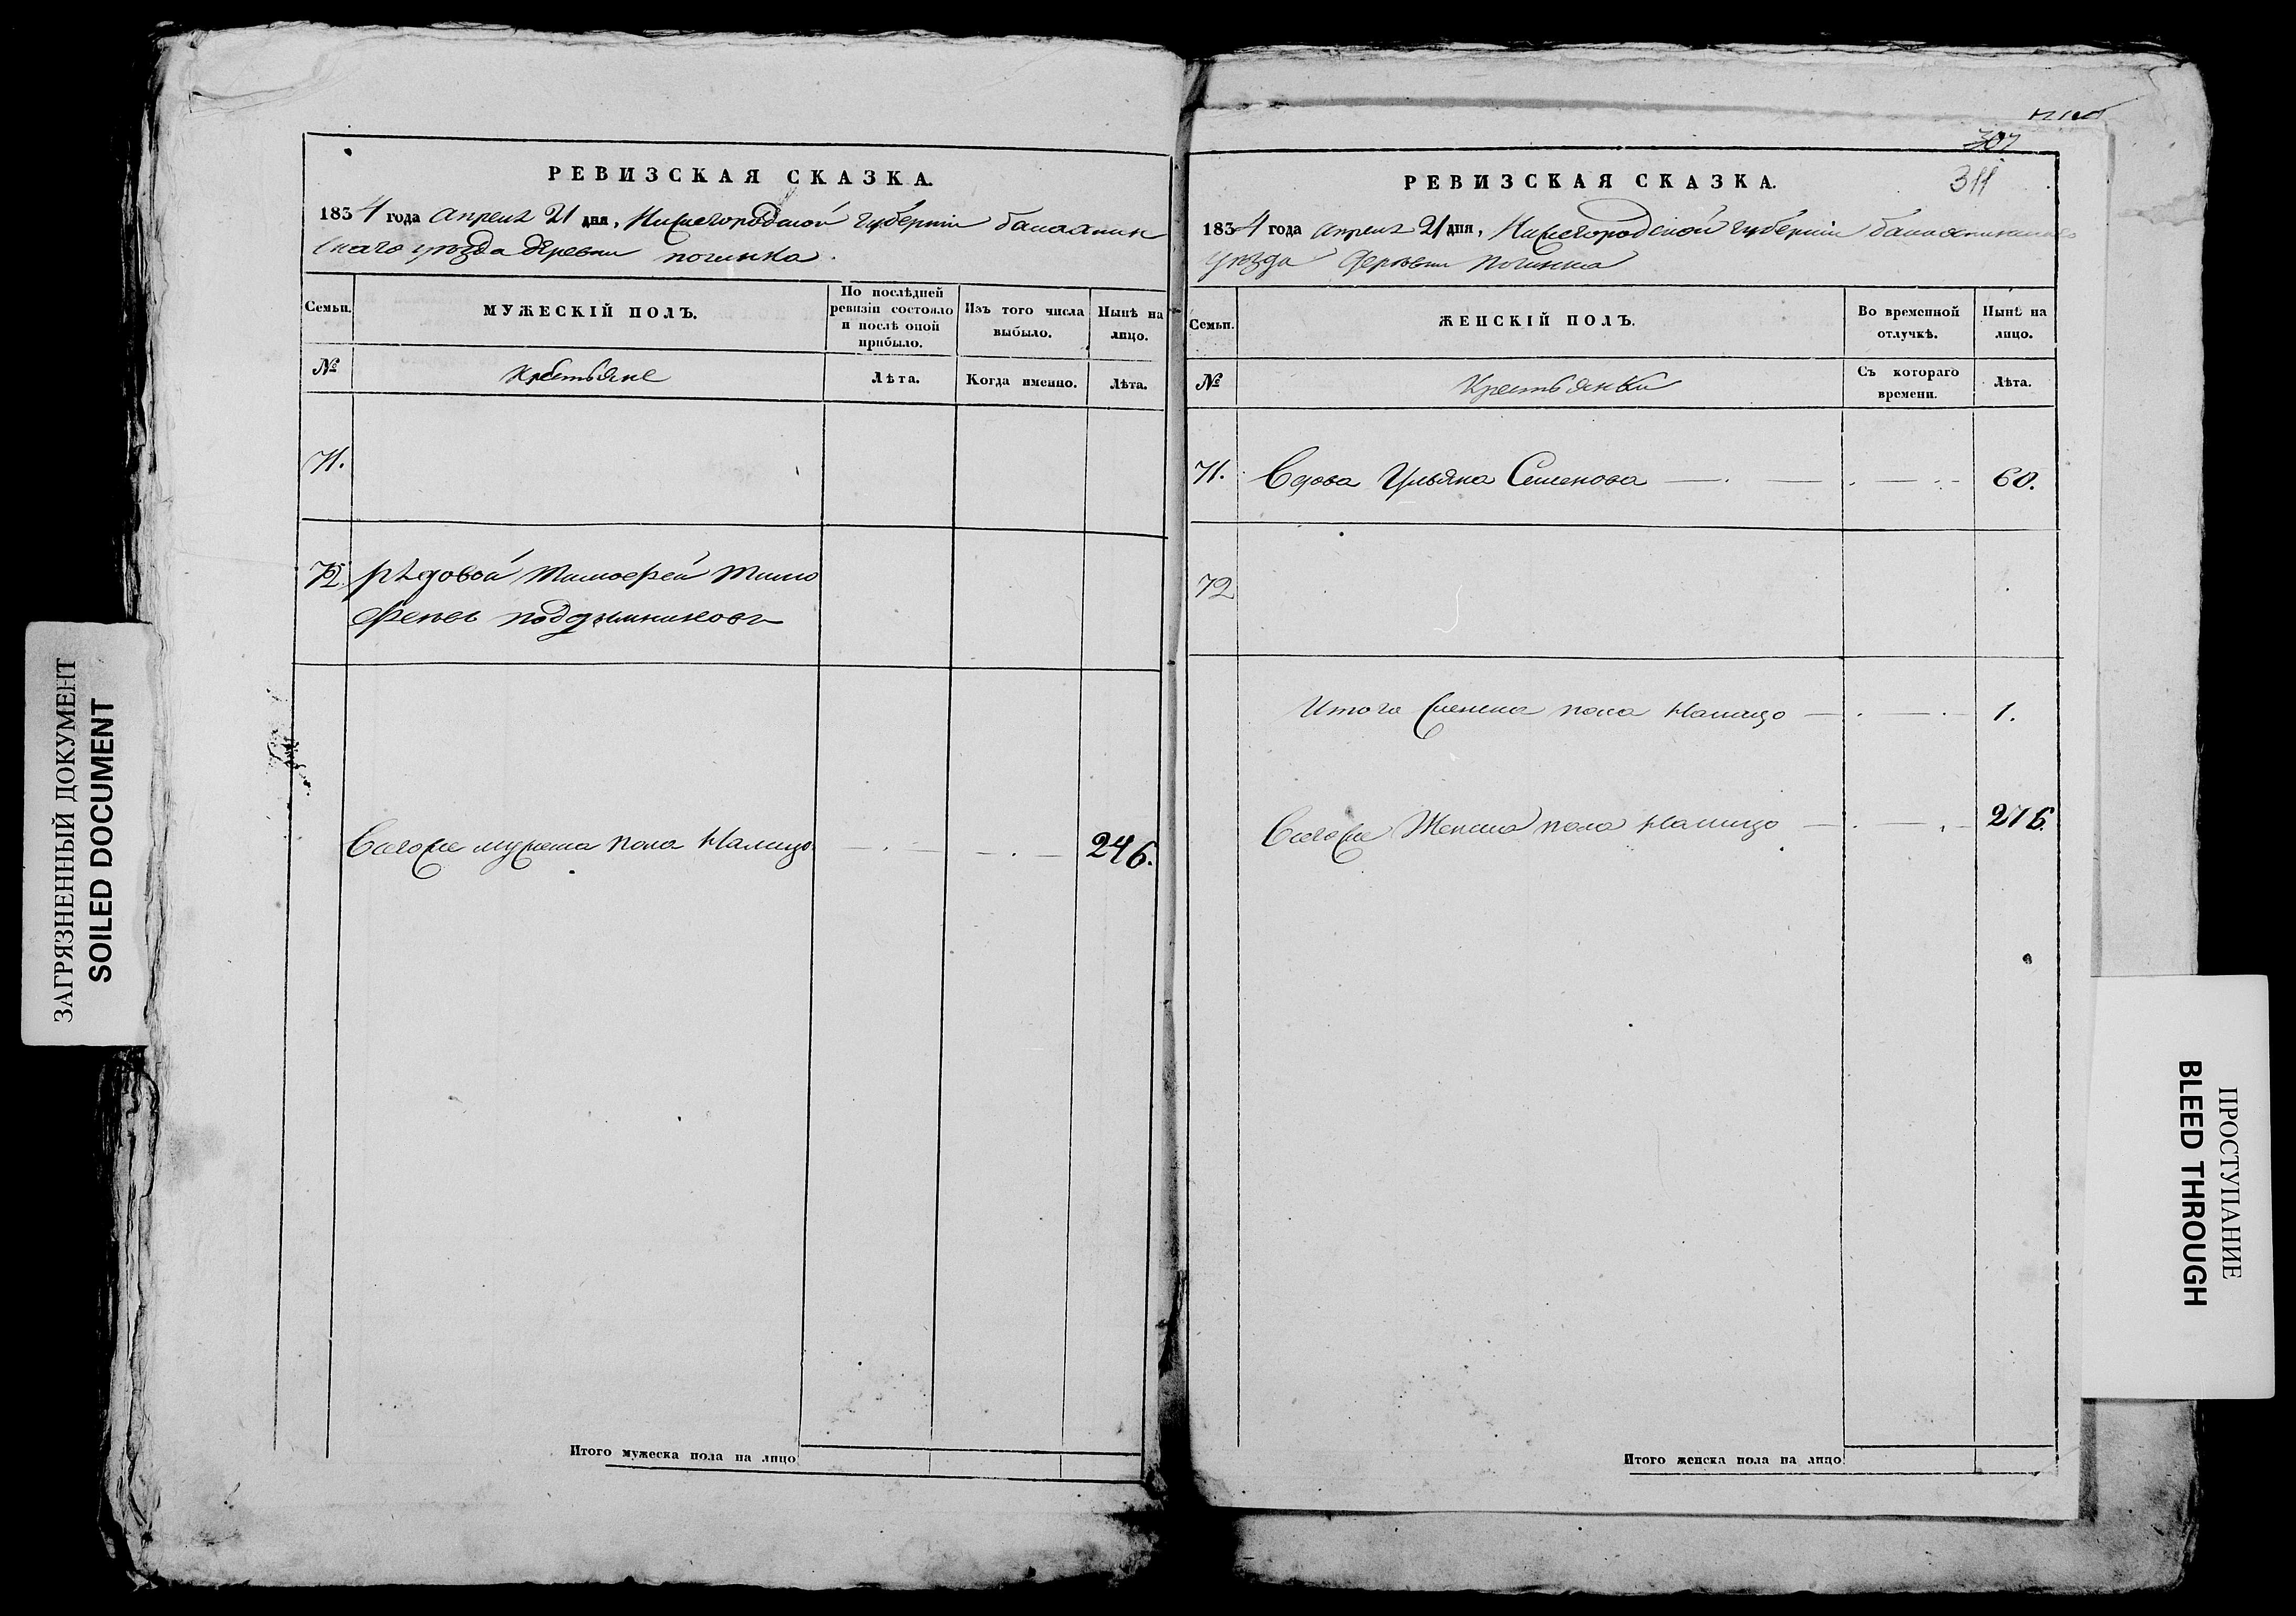 ЗАГРЯЗНЕННЫЙ ДОКУМЕНТ
SOILED DOCUMENT
РЕВИЗСКАЯ СКАЗКА.
1834 года апреля 21 дня, Нижегородской губернiи балахнин
скаго уѣзда деревни починка.
Семьи.
МУЖЕСКIЙ ПОЛЪ.
По послѣдней ревизiи состояло и послѣ оной прибыло.
Изъ того числа выбыло.
Нынѣ на лицо.
№
крестьяне
Лѣта.
Когда именно.
Лѣта.
71.
72. рядовой тимофей тимо
феевъ
Всего же мужеска пола налицо 246.
Итого мужеска пола на лицо
307
311
РЕВИЗСКАЯ СКАЗКА.
1834 года апреля 21 дня, Нижегородской губернiи балахнинскаго
уѣзда деревни починка
Семьи.
ЖЕНСКIЙ ПОЛЪ.
Во временной отлучкѣ.
Нынѣ на лицо.
№
Крестьянки
Съ котораго времени.
Лѣта.
71. Вдова Ульяна Семенова 60.
72
Итого женска пола налицо 1.
Всего же Женска пола налицо 276.
Итого женска пола на лицо
ПРОСТУПАНИЕ
BLEED THROUGH